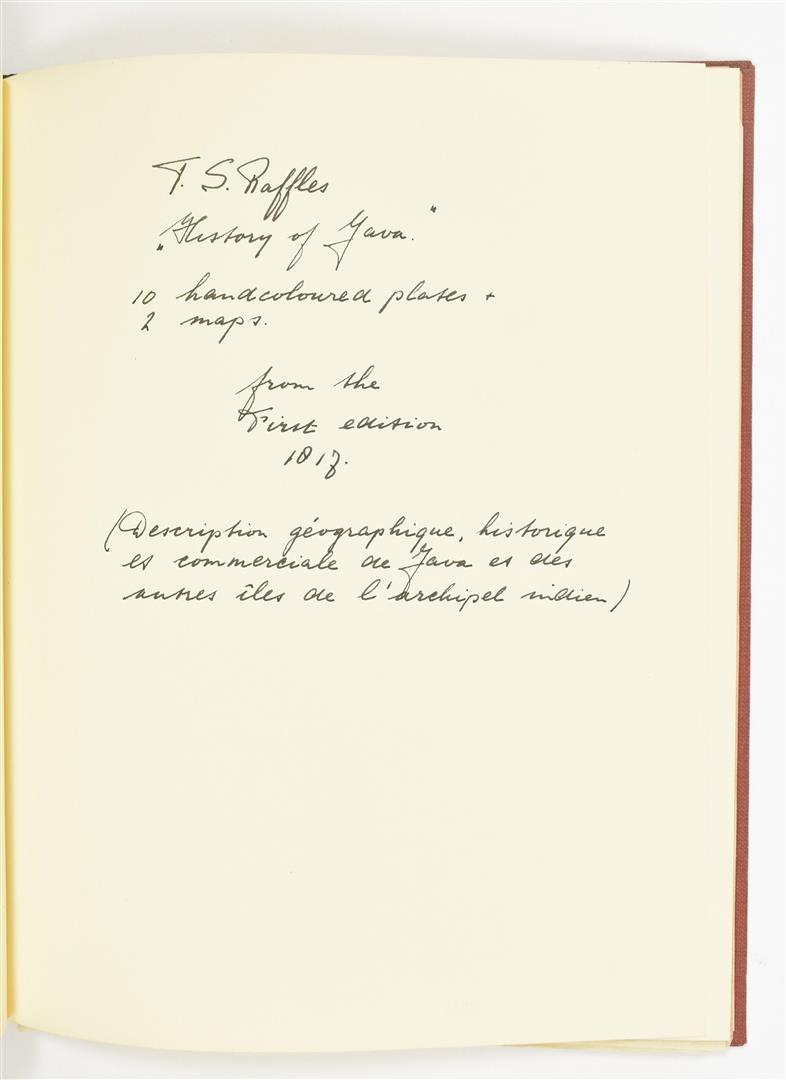 T. S. Raffles
„History of Java."
10 handcoloured plates +
2 maps.
from the
First edition
1817.
(Description géographique, historique
et commerciale de Java et des
autres îles de l'archipel indien)